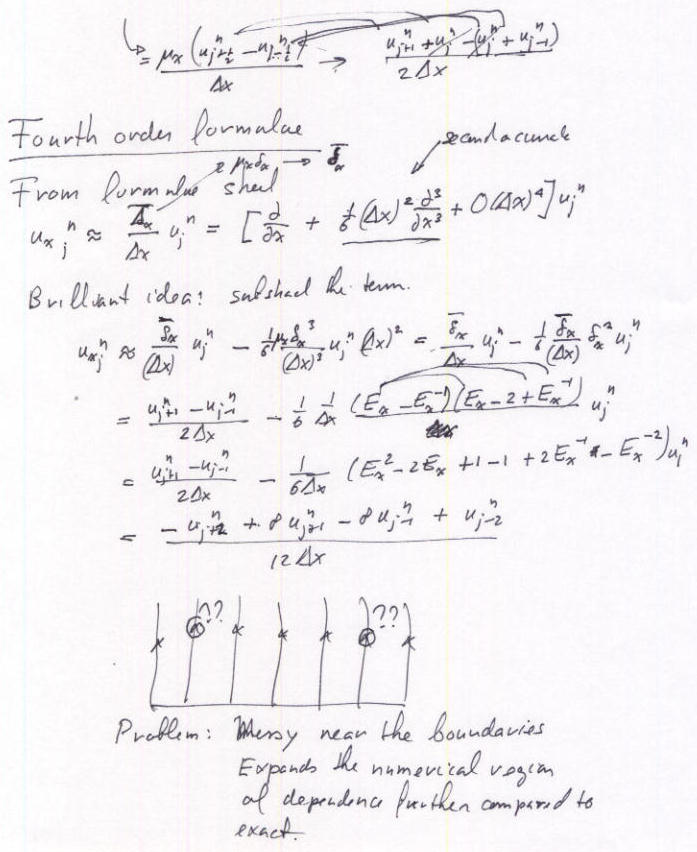 = μ_x (u^n_{j+½} − u^n_{j−½}) / Δx → (u^n_{j+1} + u^n_j − (u^n_j + u^n_{j−1})) / 2Δx
Fourth order formulae
μ_xδ_x → δ̄_x
second accurate
From formulae sheet
u_x^n_j ≈ Δ̄_x/Δx u_j^n = [∂/∂x + 1/6 (Δx)² ∂³/∂x³ + O(Δx)⁴] u_j^n
Brilliant idea: subtract the term.
u_x^n_j ≈ δ̄_x/(Δx) u_j^n − 1/6 μ_xδ_x³/(Δx)³ u_j^n (Δx)² = δ̄_x/Δx u_j^n − 1/6 δ̄_x/(Δx) δ_x² u_j^n
= (u^n_{j+1} − u^n_{j−1})/2Δx − 1/6 1/Δx (E_x − E_x^{-1})(E_x − 2 + E_x^{-1}) u_j^n
= (u^n_{j+1} − u^n_{j−1})/2Δx − 1/6Δx (E_x² − 2E_x + 1 − 1 + 2E_x^{-1} − E_x^{-2}) u_j^n
= (− u^n_{j+2} + 8u^n_{j+1} − 8u^n_{j−1} + u^n_{j−2}) / 12Δx
?? ??
Problem: Messy near the boundaries
Expands the numerical region
of dependence further compared to
exact.